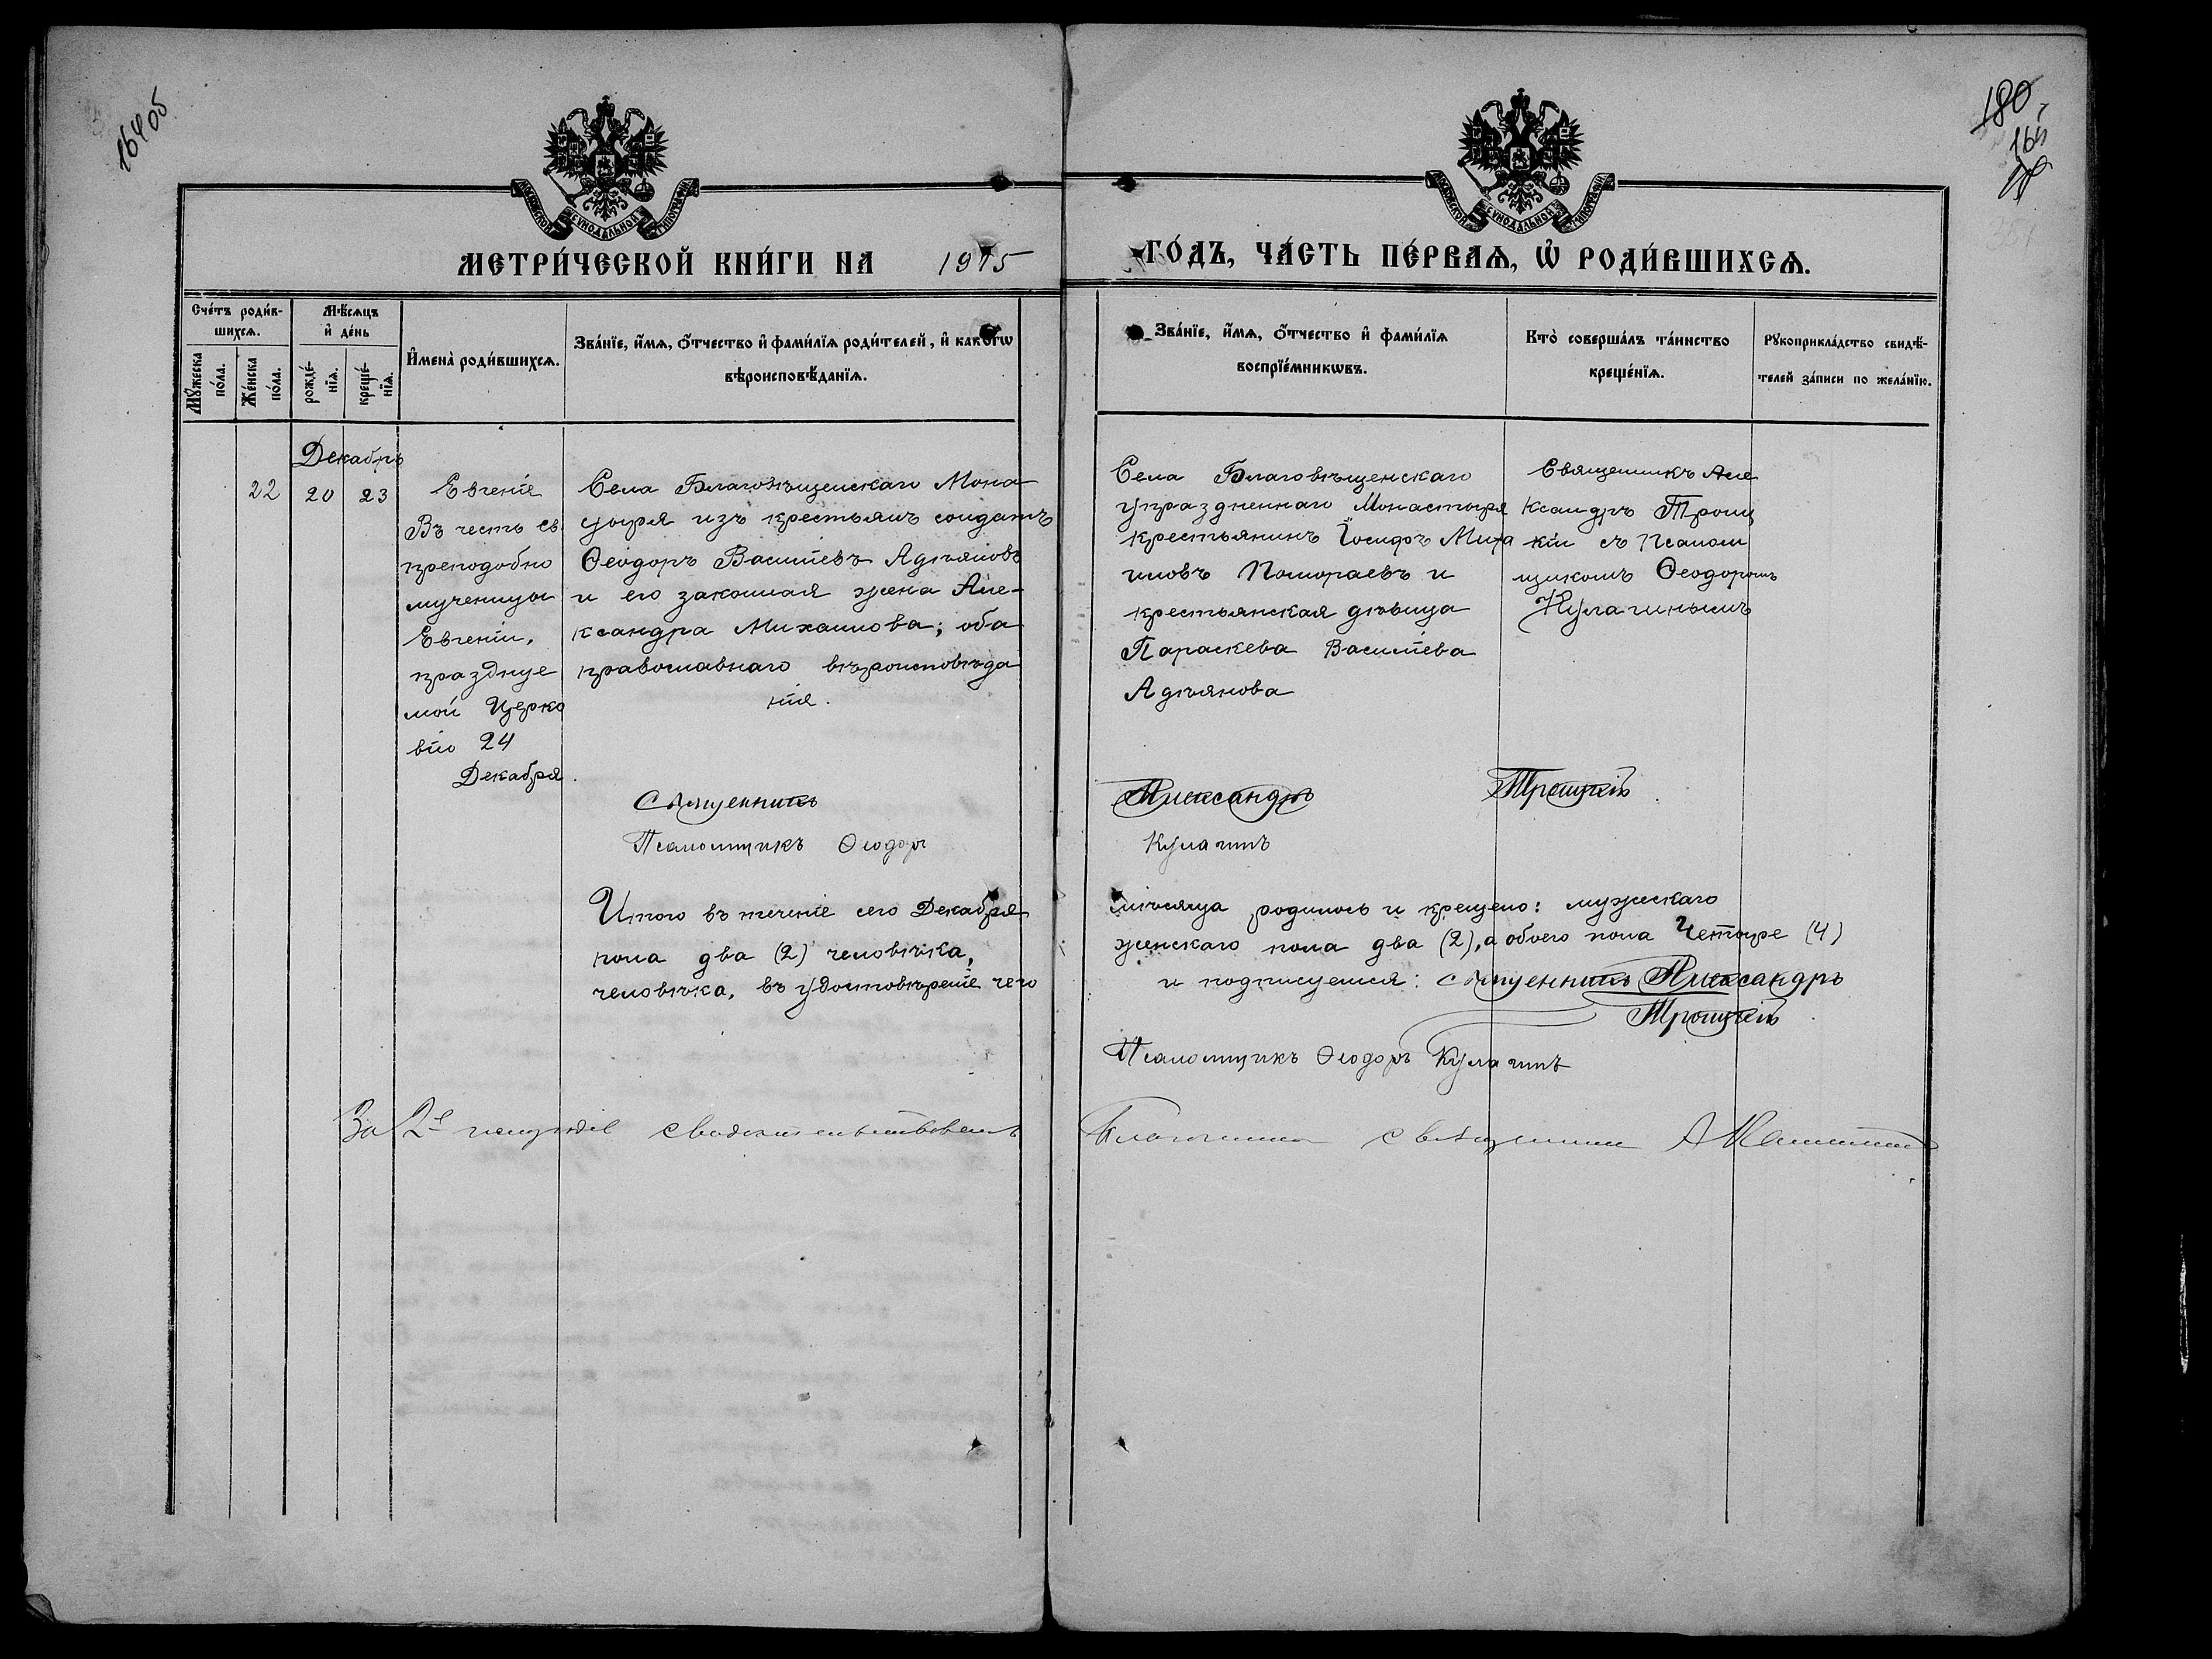 164 об
180
164
МОСКОВСКОЙ СУНОДАЛЬНОЙ ТИПОГРАФІИ
МОСКОВСКОЙ СУНОДАЛЬНОЙ ТИПОГРАФІИ
МЕТРИ́ЧЕСКОЙ КНИ́ГИ НА 1915 ГО́ДЪ, ЧА́СТЬ ПЕ́РВАѦ, Ѡ҆ РОДИ́ВШИХСѦ.
Сче́тъ роди́в-
шихсѧ.
Мꙋ́жеска по́ла.
Же́нска по́ла.
Мѣ́сѧцъ
и҆ де́нь
рожде́-
нїѧ.
креще́-
нїѧ.
И҆мена̀ роди́вшихсѧ.
Зва́нїе, и҆́мѧ, ѻ҆́тчество и҆ фами́лїѧ роди́телей, и҆ како́гѡ
вѣроисповѣ́данїѧ.
Зва́нїе, и҆́мѧ, ѻ҆́тчество и҆ фами́лїѧ
воспрїе́мникѡвъ.
Кто̀ соверша́лъ та́инство
креще́нїѧ.
Рꙋкоприкла́дство свидѣ́-
телей за́писи по жела́нїю.
Декабрь
22 20 23
Евгенія
Въ честь св.
преподобно
мученицы
Евгеніи,
праздnуе
мой Церко
вію 24
Декабря.
Села Благовѣщенскаго Мона
стыря изъ крестьянъ солдатъ
Ѳеодоръ Васильевъ Адѣяновъ
и его законная жена Але-
ксандра Михаилова; оба
православнаго вѣроисповѣда
нія.
Села Благовѣщенскаго
упраздненнаго Монастыря
крестьянинъ Іосифъ Миха
иловъ Помораевъ и
крестьянская дѣвица
Параскева Васильева
Адѣянова
Священникъ Але
ксандръ Троиц
кій съ Псалом
щикомъ Ѳеодоромъ
Кулагинымъ
Священникъ Александръ Троицкій
Псаломщикъ Ѳеодоръ Кулагинъ
Итого въ теченіе сего Декабря мѣсяца родилось и крещено: мужескаго
пола два (2) человѣка, женскаго пола два (2), а обоего пола Четыре (4)
человѣка, въ удостовѣреніе чего и подписуемся: священникъ Александръ
Троицкій
Псаломщикъ Ѳеодоръ Кулагинъ
За 2е полугодіе свидѣтельствовалъ Благочинный священникъ А